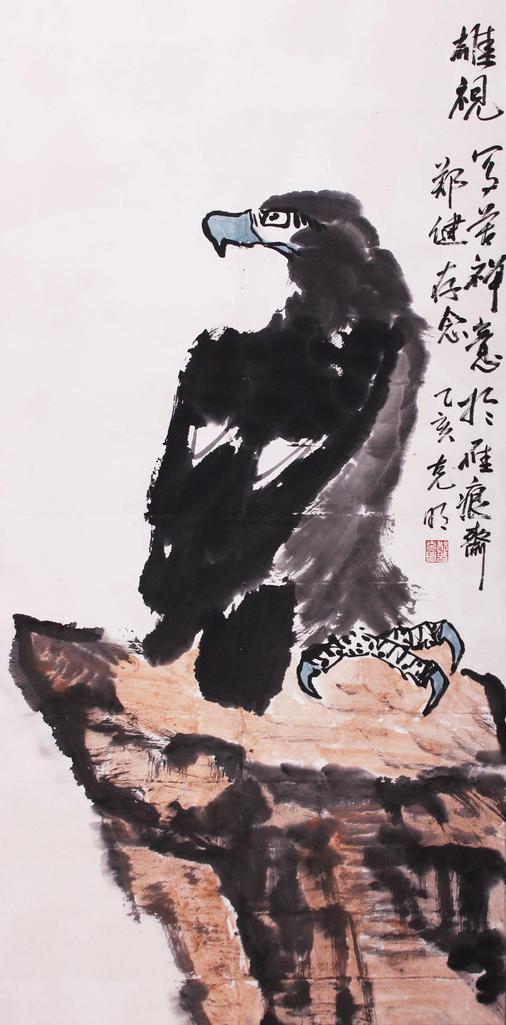 雄視
写苦禅意於雁痕齋
郑健存念
乙亥克明